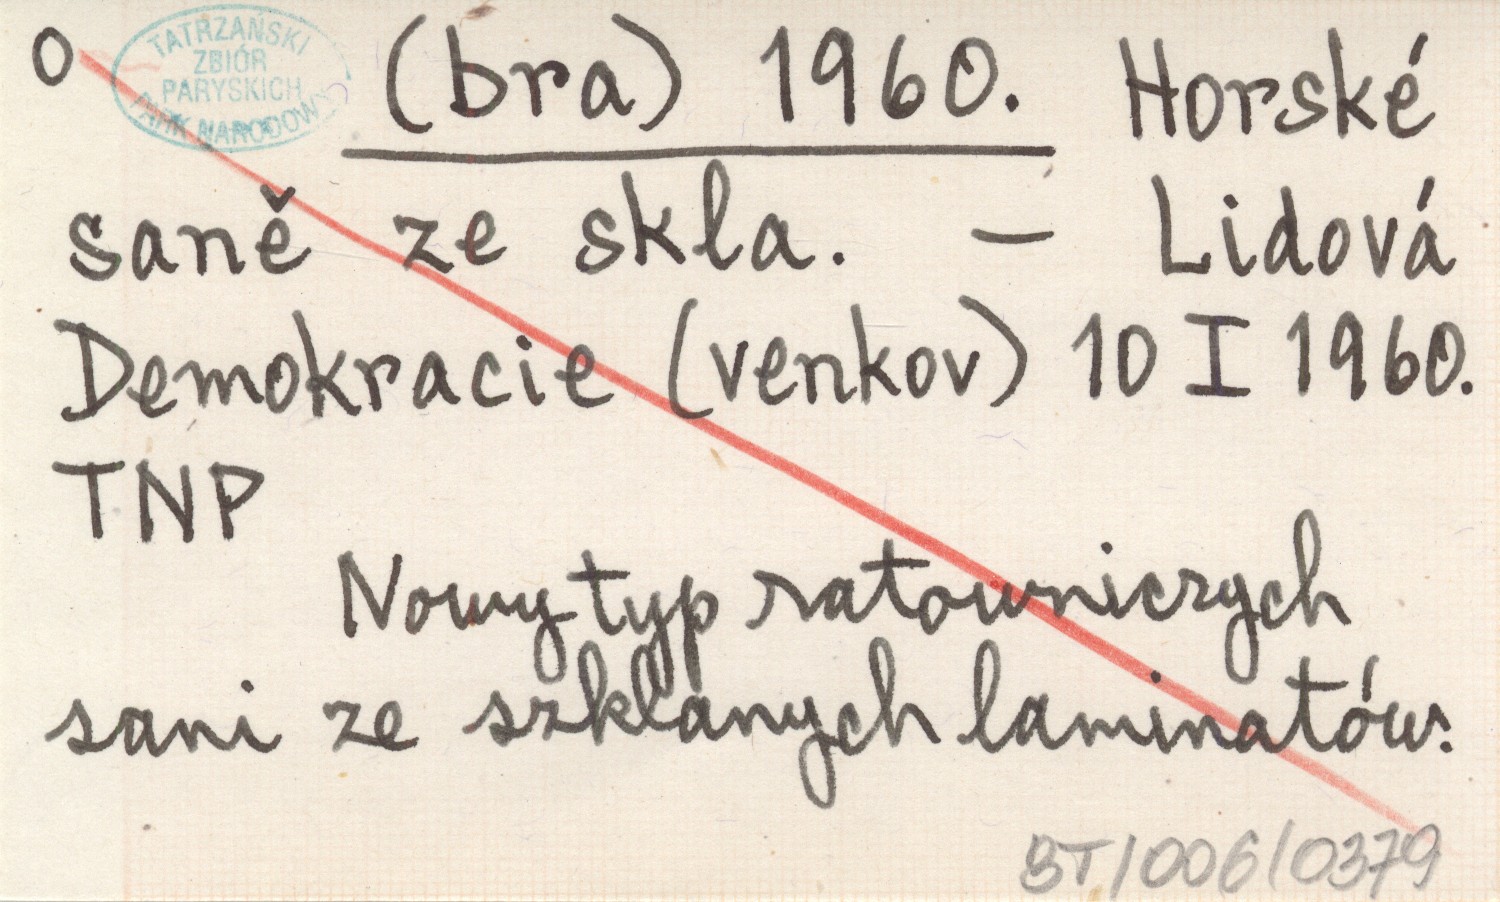 O
TATRZAŃSKI
ZBIÓR
PARYSKICH
PARK NARODOWY
(bra) 1960. Horské
saně ze skla. — Lidová
Demokracie (venkov) 10 I 1960.
TNP
Nowy typ ratowniczych
sani ze szklanych laminatów.
BT/006/0379